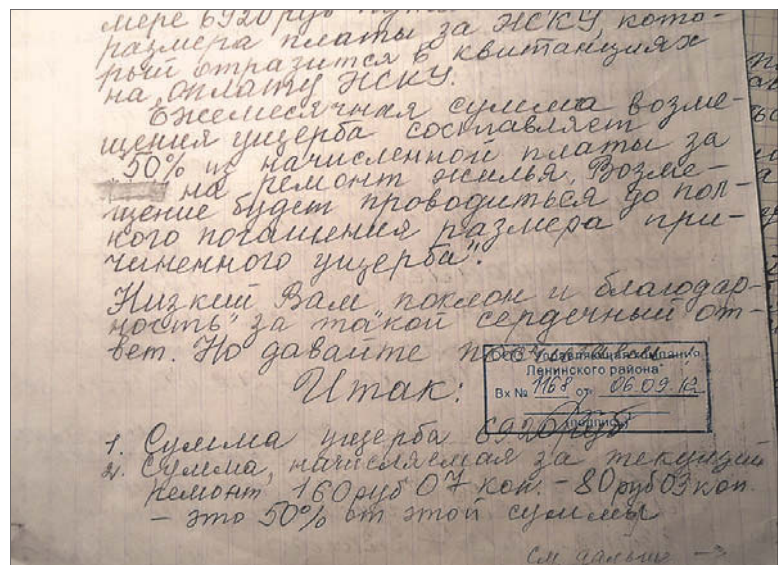 мере 6920 руб пут
размера платы за ЖКУ, кото-
рый отразится в квитанциях
на оплату ЖКУ.
Ежемесячная сумма возме-
щения ущерба составляет
50% из начисленной платы за
на ремонт жилья, Возме-
щение будет проводиться до пол-
кого погашения размера при-
чиненного ущерба".
Низкий Вам поклон и благодар-
ность" за та"кой сердечный от-
вет. Но давайте посчитаем!
ООО "Управляющая компания
Ленинского района"
Вх № 1168 от 06.09.12
(подпись)
Итак:
1. Сумма ущерба 6920 руб
2. Сумма, начисляемая за текущий
ремонт 160 руб 07 коп. - 80 руб 03 коп
- это 50% от этой суммы
см дальше →